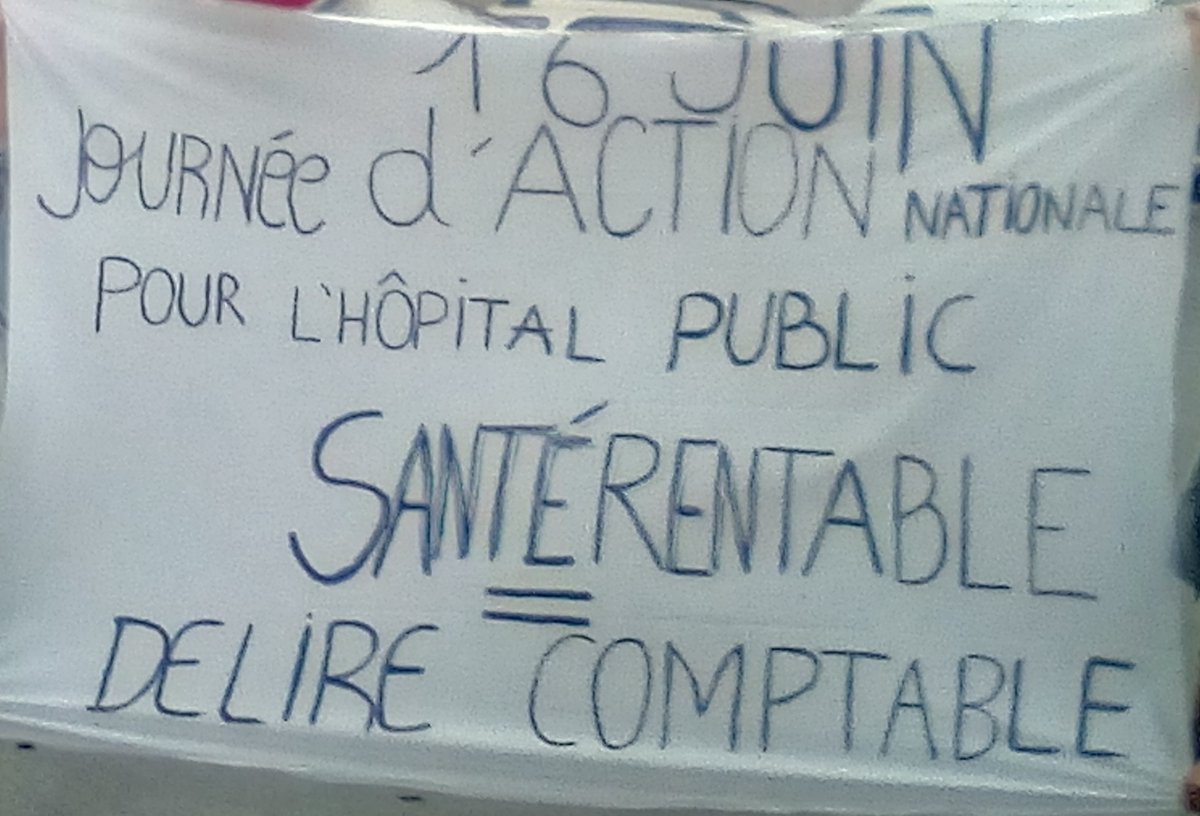 16 JUIN
JOURNÉE d'ACTION NATIONALE
POUR L'HÔPITAL PUBLIC
SANTÉRENTABLE
=
DELIRE COMPTABLE